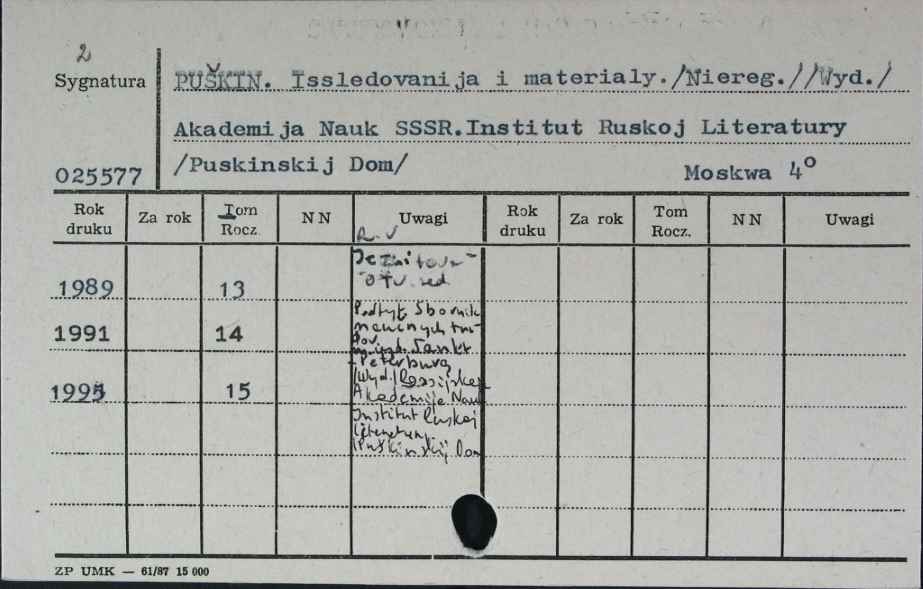 2
Sygnatura
PUŠKIN. Issledovanija i materialy./Niereg.//Wyd./
Akademija Nauk SSSR.Institut Ruskoj Literatury
025577
/Puskinskij Dom/
Moskwa 4°
Rok druku Za rok Tom Rocz. NN Uwagi Rok druku Za rok Tom Rocz. NN Uwagi
1989 13
otv. red.
1991 14
Podtyt. Sbornik
naučnych
Sankt
-Peterburg
1995 15
/Wyd./Rossijskaja
Akademija Nauk
Institut Ruskoj
Literatury
/Puškinskij Dom
ZP UMK — 61/87 15 000